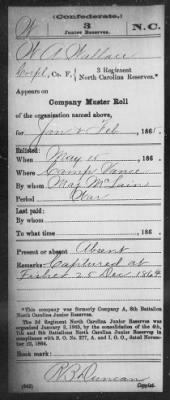 (Confederate.)
W 3 N.C.
Junior Reserves.
W A Wallace
Corpl, Co. F, 3 Regiment
North Carolina Reserves.*
Appears on
Company Muster Roll
of the organization named above,
for Jan & Feb, 186
Enlisted:
When May 186
Where Camp Vance
By whom Maj McLean
Period War
Last paid:
By whom
To what time , 186
Present or absent Absent
Remarks: Captured at
Fisher 25 Dec 1864
*This company was formerly Company A, 8th Battalion
North Carolina Junior Reserves.
The 3d Regiment North Carolina Junior Reserves was
organized January 3, 1865, by the consolidation of the 4th,
7th and 8th Battalions North Carolina Junior Reserves in
compliance with S. O. No. 277, A. and I. G. O., dated November
22, 1864.
Book mark:
R B Duncan
(642) Copyist.